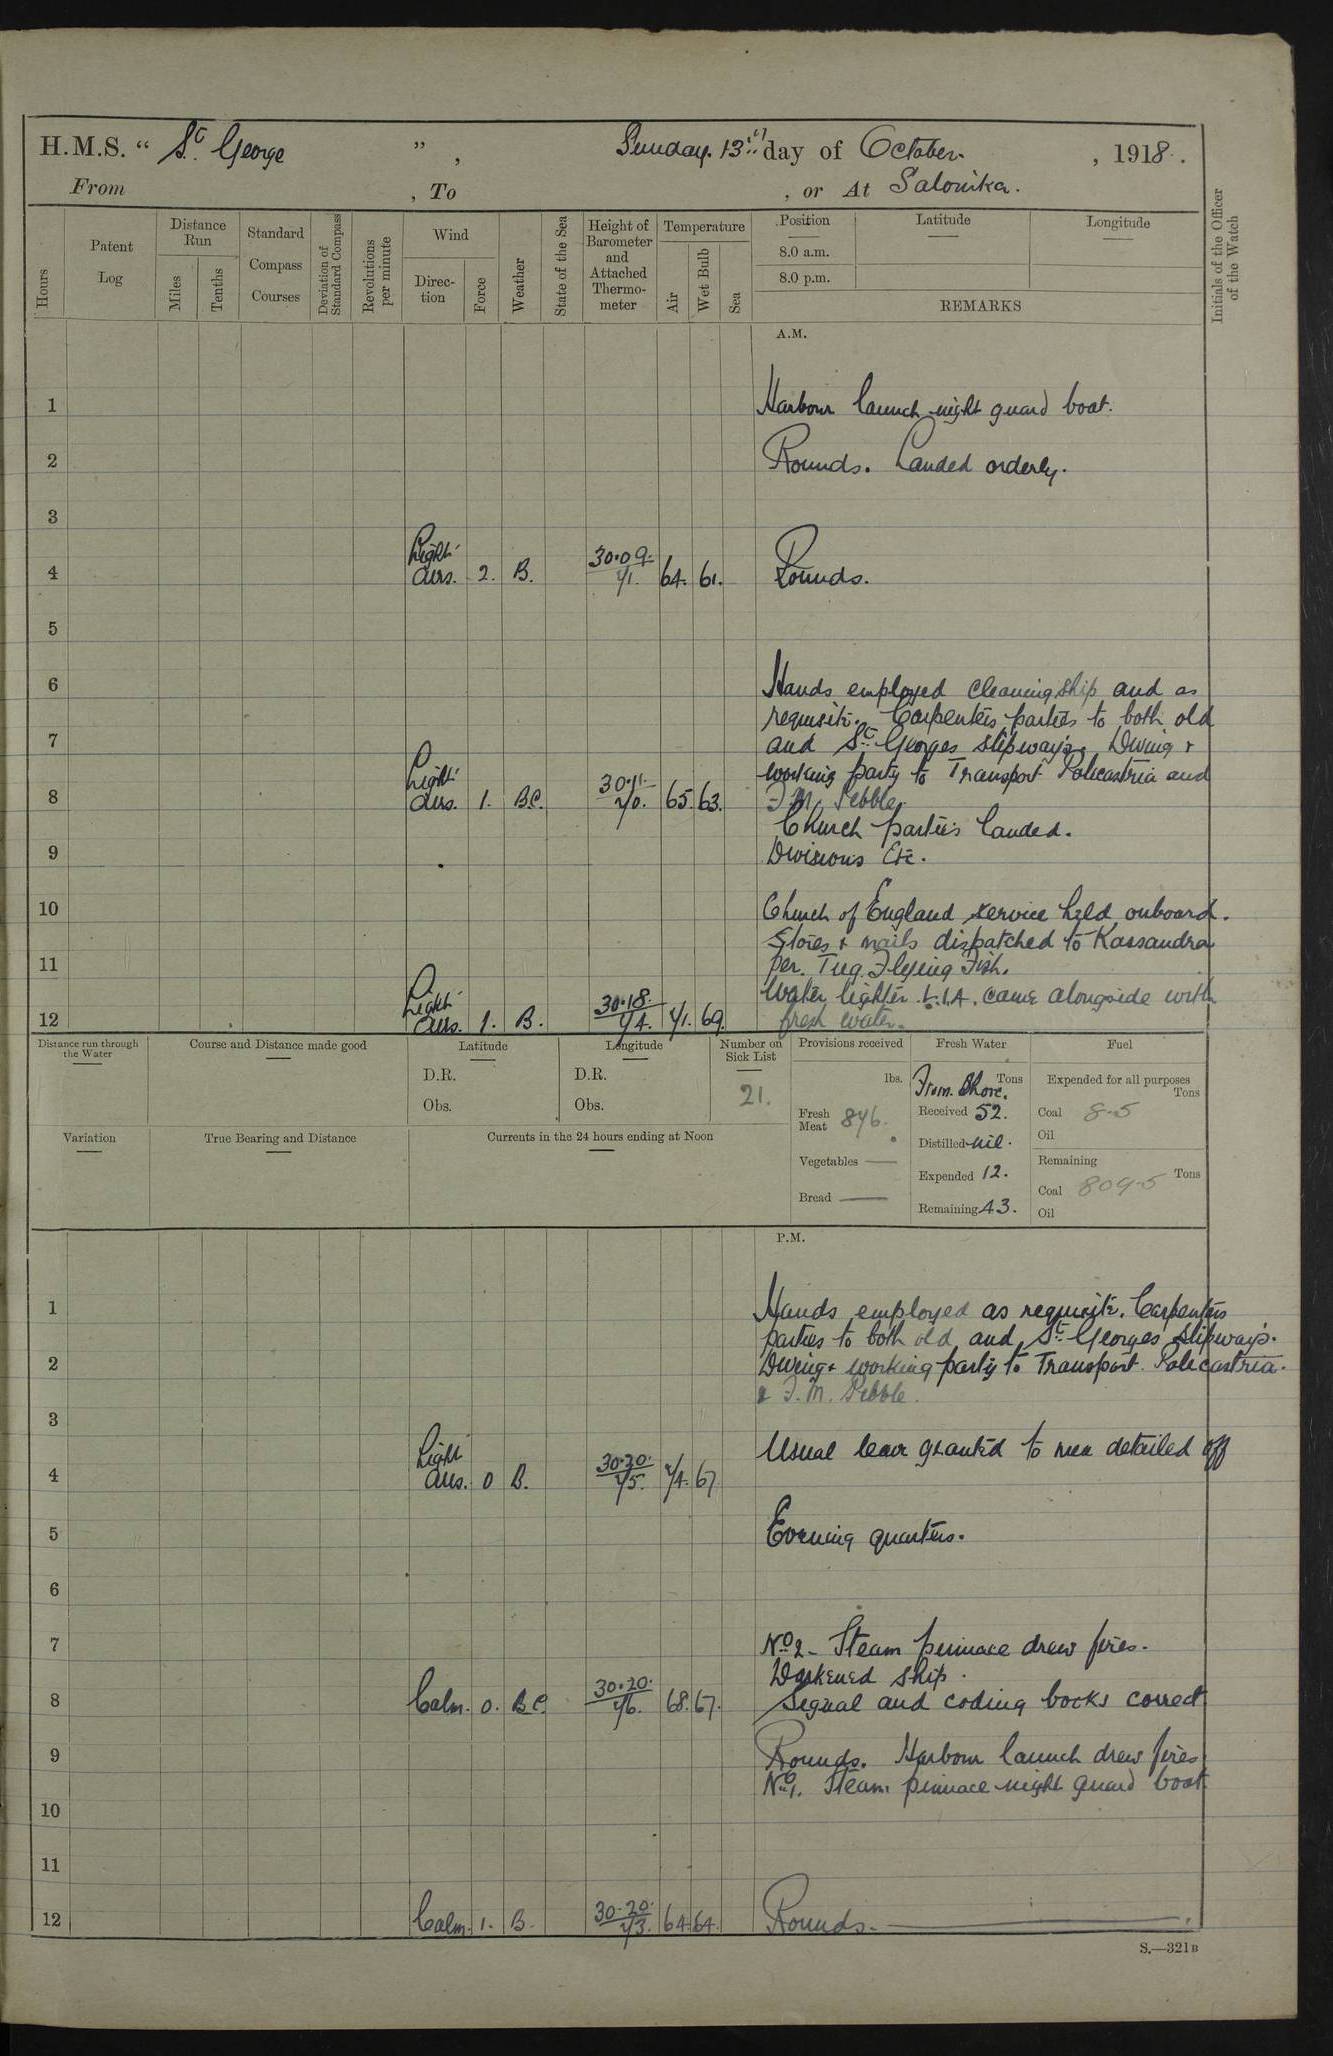 H.M.S. “ St. George ” , Sunday. 13th day of October. , 1918.
From , To , or At Salonika.
Hours
Patent Log
Distance Run
Miles
Tenths
Standard Compass Courses
Deviation of Standard Compass
Revolutions per minute
Wind
Direction
Force
Weather
State of the Sea
Height of Barometer and Attached Thermometer
Temperature
Air
Wet Bulb
Sea
Position
Latitude
Longitude
8.0 a.m.
8.0 p.m.
REMARKS
Initials of the Officer of the Watch
A.M.
1 Harbour launch night guard boat.
2 Rounds. Landed orderly.
3
4 Light airs. 2. B. 30.09. 71. 64. 61. Rounds.
5
6 Hands employed cleaning ship and as
requisite. Carpenters parties to both old
7 and St. Georges slipways. Diving &
working party to Transport Policastria and
8 Light airs. 1. B.C. 30.11. 70. 65. 63. F.M. Pebble.
Church parties landed.
9 Divisions Etc.
10 Church of England service held onboard.
Stores & mails dispatched to Kassandra
11 per. Tug. Flying Fish.
Water lighter L.1A. came alongside with
12 Light airs. 1. B. 30.18. 74. 71. 69. fresh water.
Distance run through the Water
Course and Distance made good
Latitude
D.R.
Obs.
Longitude
D.R.
Obs.
Number on Sick List
21.
Provisions received
lbs.
Fresh Meat 846.
Vegetables —
Bread —
Fresh Water
From Shore. Tons
Received 52.
Distilled nil.
Expended 12.
Remaining 43.
Fuel
Expended for all purposes
Tons
Coal 8-5
Oil
Remaining
Coal 809-5 Tons
Oil
Variation
True Bearing and Distance
Currents in the 24 hours ending at Noon
P.M.
1 Hands employed as requisite. Carpenters
parties to both old and St. Georges slipways.
2 Diving & working party to Transport Policastria.
& F.M. Pebble.
3
Usual leave granted to men detailed off
4 Light airs. 0 B. 30.20. 75. 74. 67
5 Evening quarters.
6
7 No 2 - Steam pinnace drew fires.
Darkened ship.
8 Calm. 0. B.C. 30.20. 76. 68. 67. Signal and coding books correct
9 Rounds. Harbour launch drew fires
No 1. Steam pinnace night guard boat
10
11
12 Calm. 1. B. 30.20. 73. 64. 64. Rounds.
S.—321B